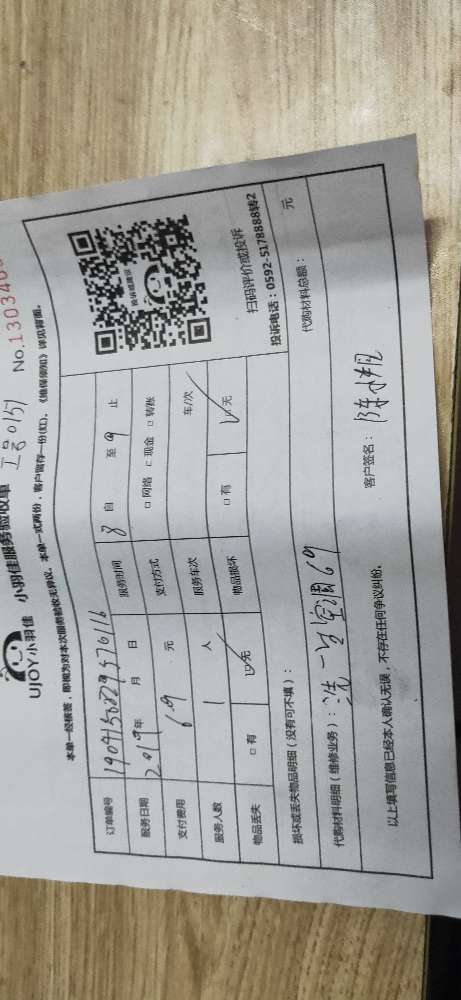 小羽佳服务验收单 工号0151 No.1303
UJOY小羽佳
本单一经核签，即视为对本次服务验收无异议。本单一式两份，客户留存一份(红)，《维保须知》详见背面。
订单编号
服务时间 8 自 至 9 止
服务日期 2019年 月 日
支付方式 □ 网络 □ 现金 □ 转账
支付费用 69 元
服务车次 车/次
服务人数 1 人
物品损坏 □ 有 □ 无
物品丢失 □ 有 □ 无
投诉或建议
扫码评价或投诉
投诉电话：0592-5178888转2
损坏或丢失物品明细（没有可不填）：
代购材料明细（维修业务）：洗一台空调69
代购材料总额： 元
以上填写信息已经本人确认无误，不存在任何争议纠纷。
客户签名：